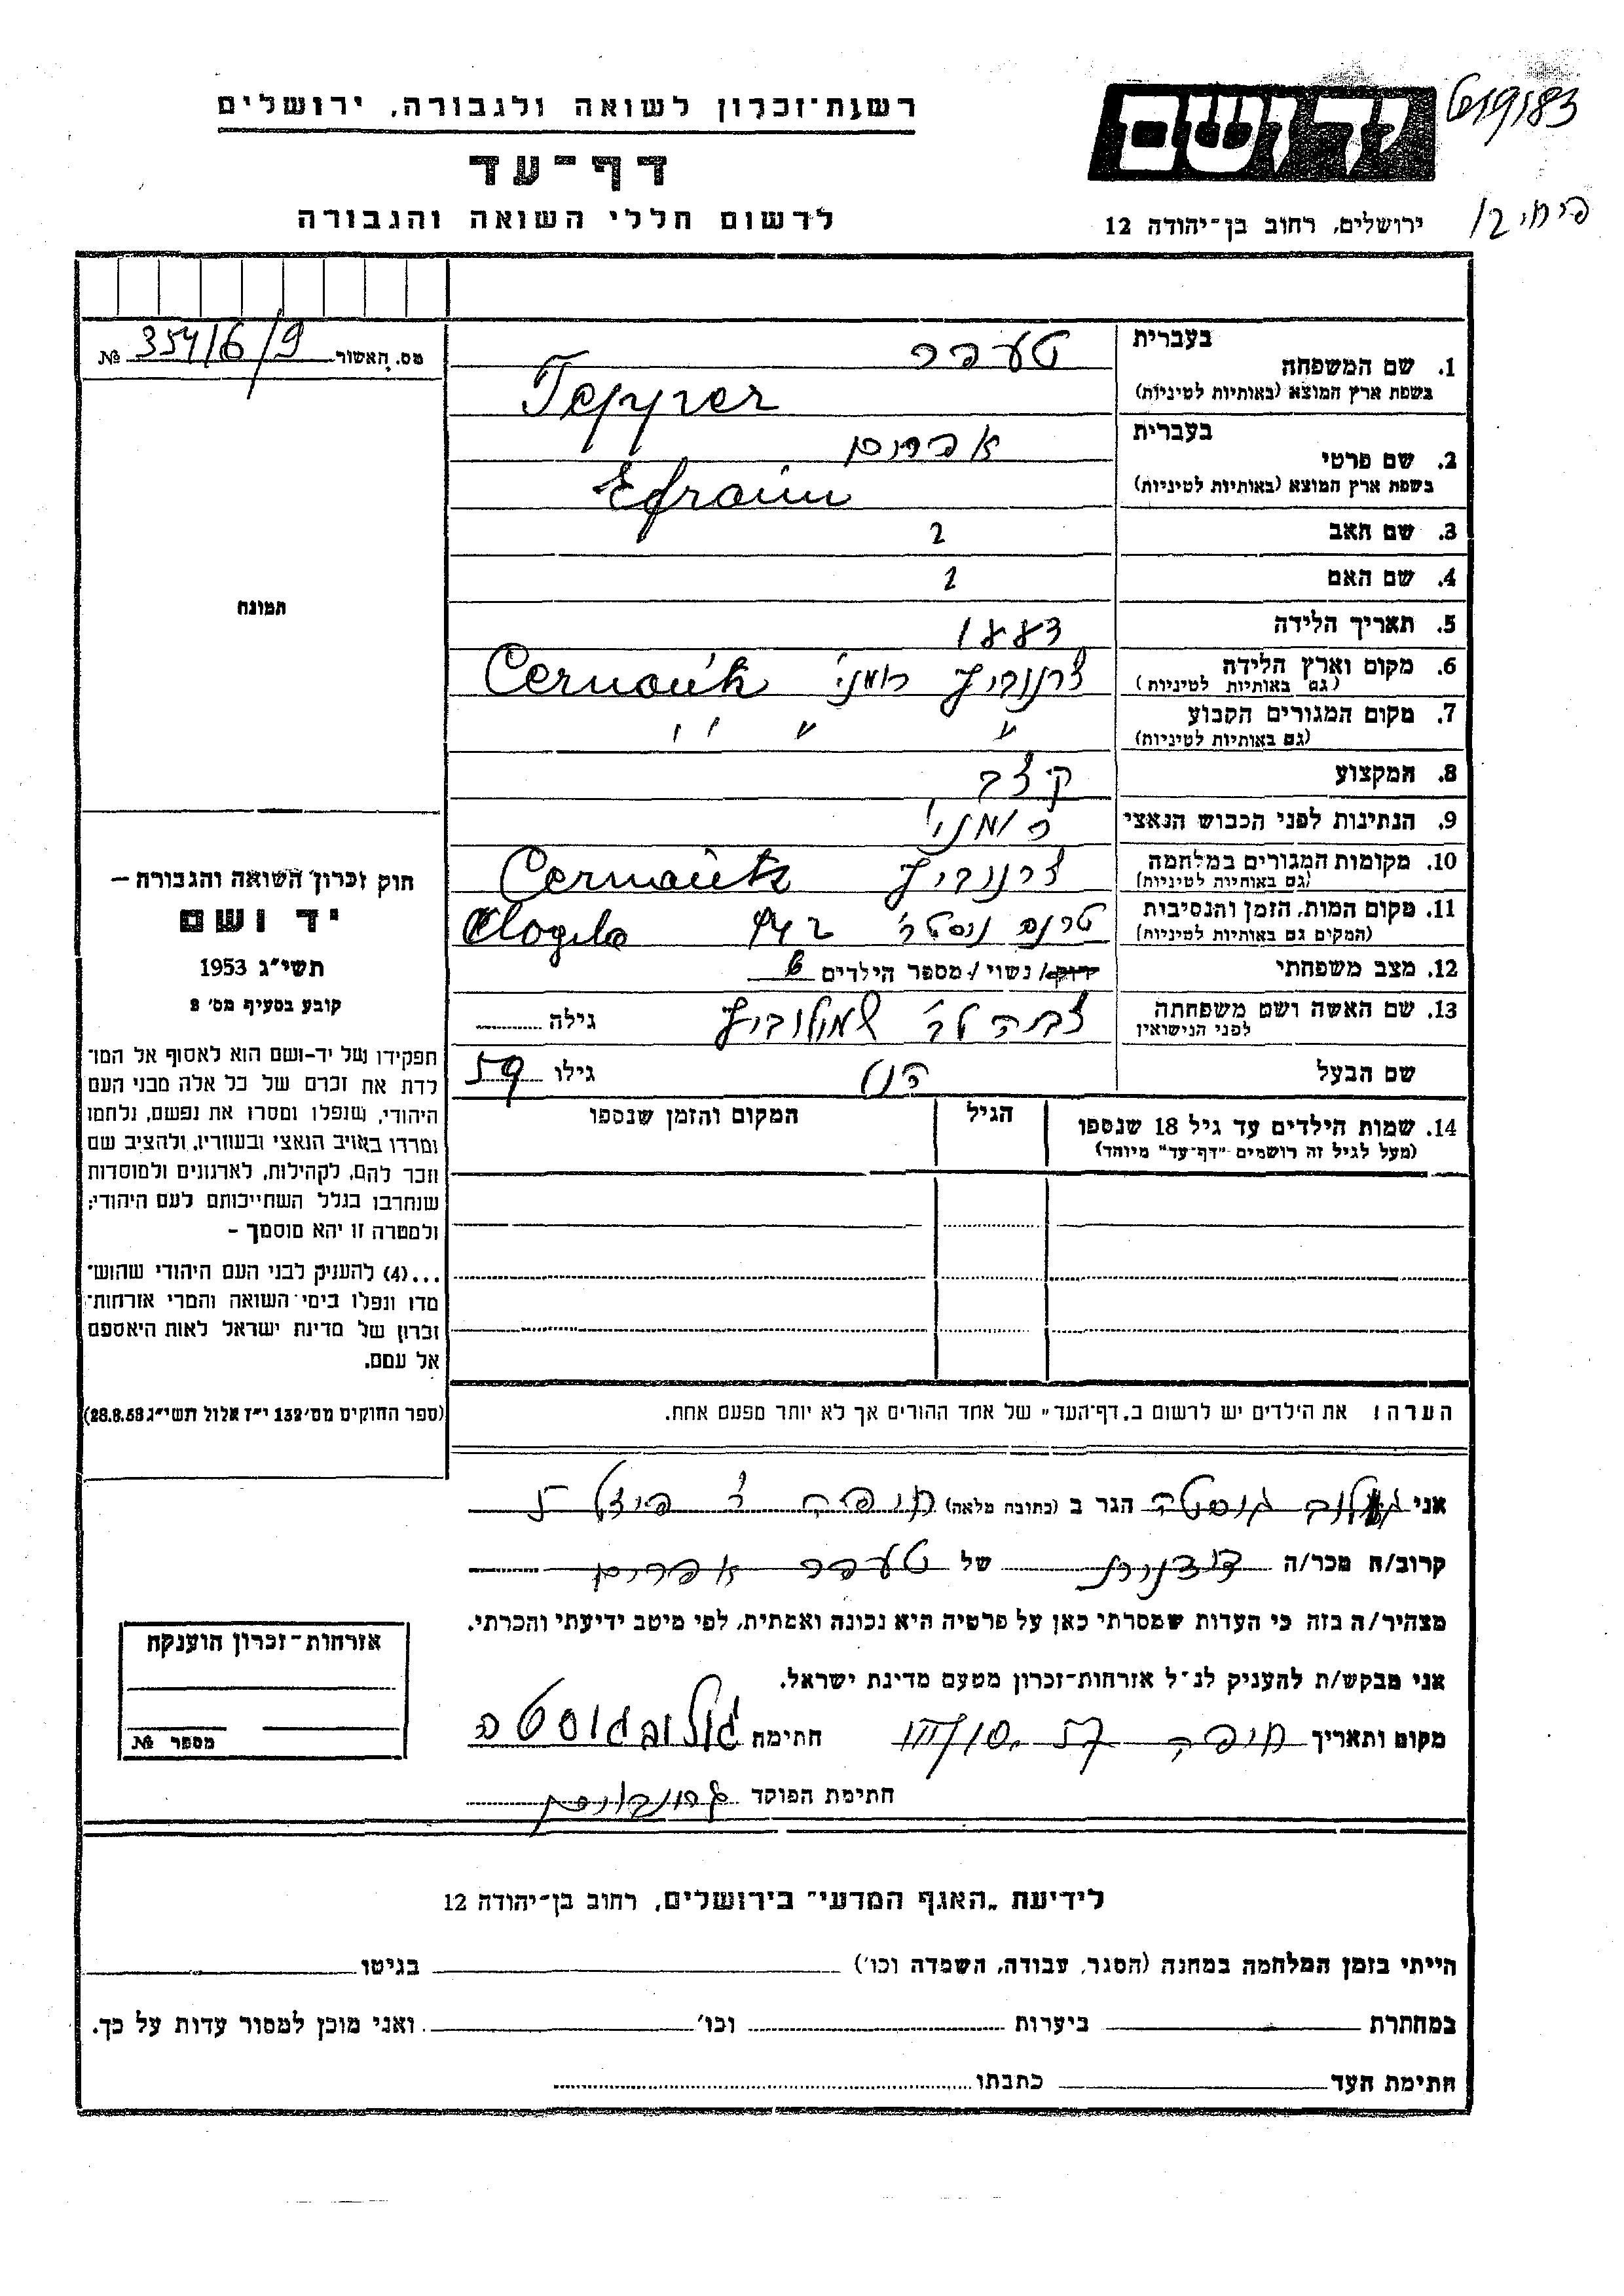 רשות-זכרון לשואה ולגבורה, ירושלים
דף-עד
לרשום חללי השואה והגבורה
יד ושם
ירושלים, רחוב בן-יהודה 12
מס. האשור 354/6/9 №
תמונה
חוק זכרון השואה והגבורה —
יד ושם
תשי"ג 1953
קובע בסעיף מס' 2
תפקידו של יד-ושם הוא לאסוף אל המו־
לדת את זכרם של כל אלה מבני העם
היהודי, שנפלו ומסרו את נפשם, נלחמו
ומרדו באויב הנאצי ובעוזריו, ולהציב שם
וזכר להם, לקהילות, לארגונים ולמוסדות
שנחרבו בגלל השתייכותם לעם היהודי;
ולמטרה זו יהא מוסמך -
...(4) להעניק לבני העם היהודי שהוש־
מדו ונפלו בימי השואה והמרי אזרחות-
זכרון של מדינת ישראל לאות היאספם
אל עמם.
(ספר החוקים מס' 132 י"ז אלול תשי"ג 28.8.53)
1. שם המשפחה
בעברית טעפר
בשפת ארץ המוצא (באותיות לטיניות) Tepper
2. שם פרטי
בעברית אפרים
בשפת ארץ המוצא (באותיות לטיניות) Efraim
3. שם האב ?
4. שם האם ?
5. תאריך הלידה 1883
6. מקום וארץ הלידה (גם באותיות לטיניות) צרנוביץ רומני' Cernoutz
7. מקום המגורים הקבוע (גם באותיות לטיניות) " " " "
8. המקצוע קצב
9. הנתינות לפני הכבוש הנאצי רומני'
10. מקומות המגורים במלחמה (גם באותיות לטיניות) צרנוביץ Cernoutz
11. מקום המות, הזמן והנסיבות (המקום גם באותיות לטיניות) טרנסניסטר' 942
12. מצב משפחתי רווק/ נשוי / מספר הילדים
13. שם האשה ושם משפחתה לפני הנישואין שמולוביץ גילה
שם הבעל הנ"ל גילו 59
14. שמות הילדים עד גיל 18 שנספו
(מעל לגיל זה רושמים "דף-עד" מיוחד)
הגיל
המקום והזמן שנספו
הערה: את הילדים יש לרשום ב"דף-העד" של אחד ההורים אך לא יותר מפעם אחת.
אני גולוב גוסטה הגר ב (כתובת מלאה) חיפה
קרוב/ה מכר/ה של טעפר אפרים
מצהיר/ה בזה כי העדות שמסרתי כאן על פרטיה היא נכונה ואמתית, לפי מיטב ידיעתי והכרתי.
אני מבקש/ת להעניק לנ"ל אזרחות-זכרון מטעם מדינת ישראל.
מקום ותאריך חיפה חתימה גולוב גוסטה
חתימת הפוקד
אזרחות-זכרון הוענקה
מספר №
לידיעת "האגף המדעי" בירושלים, רחוב בן-יהודה 12
הייתי בזמן המלחמה במחנה (הסגר, עבודה, השמדה וכו') בגיטו
במחתרת ביערות וכו' ואני מוכן למסור עדות על כך.
חתימת העד כתבתו